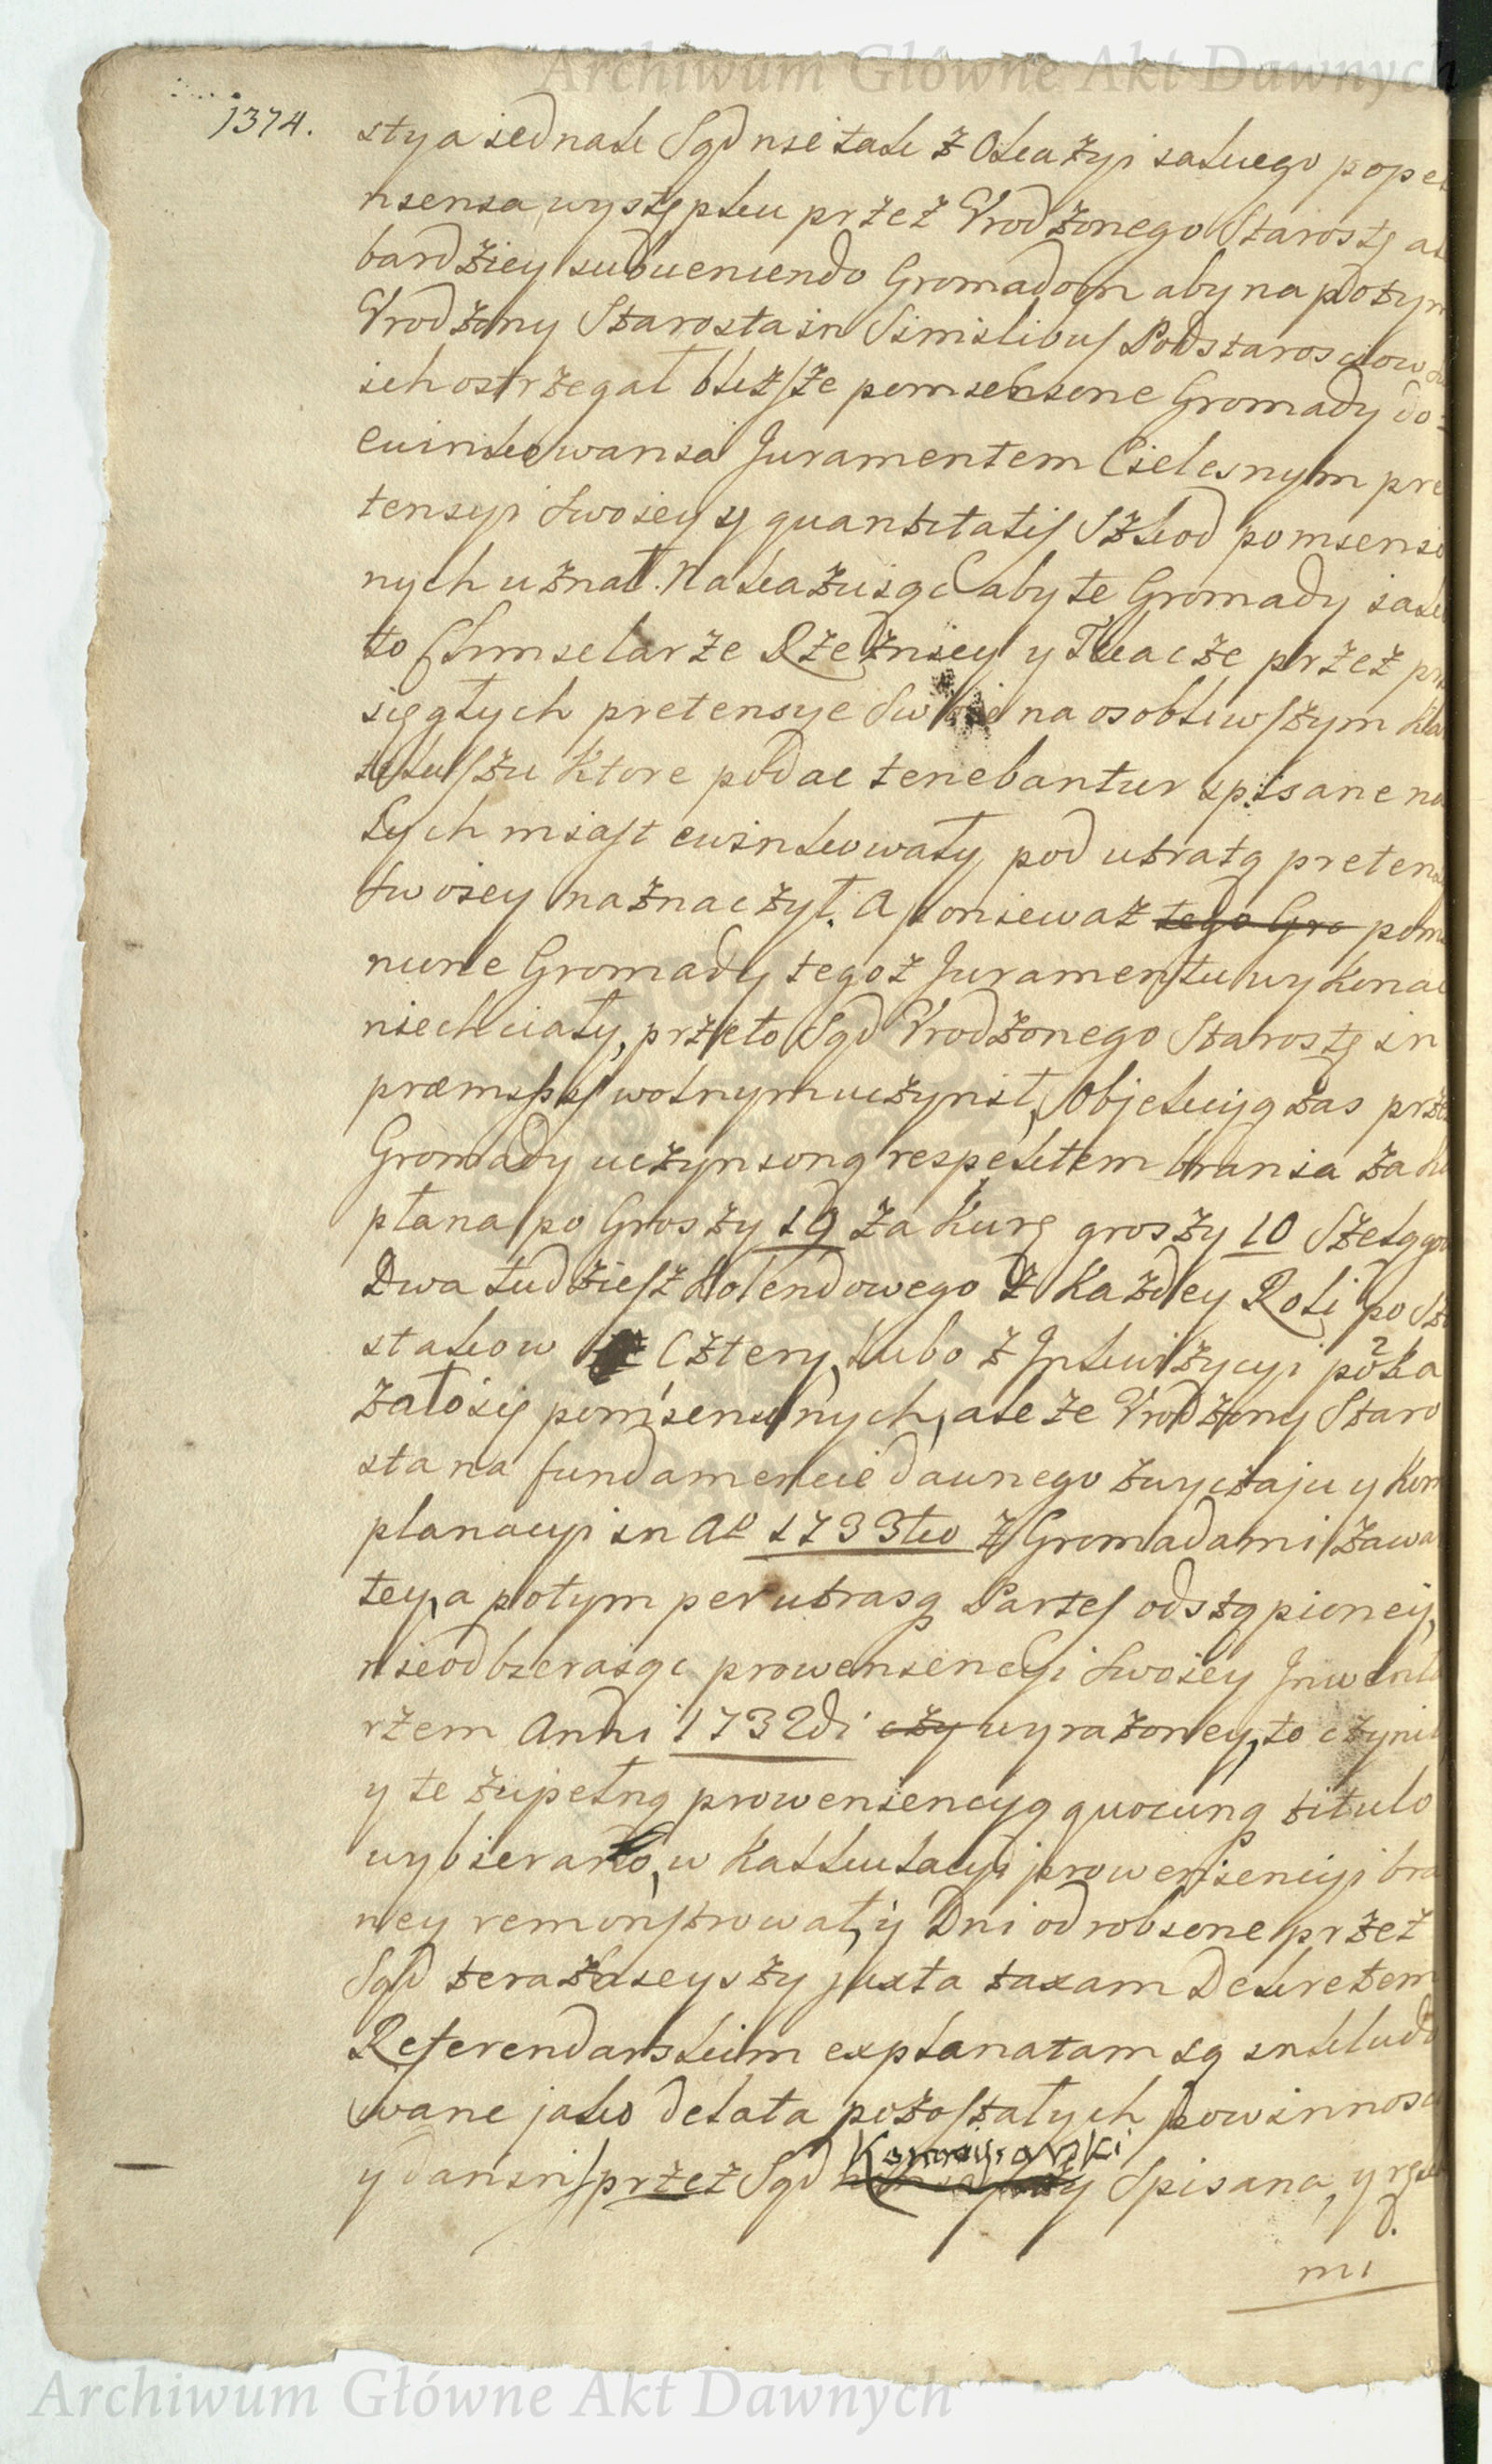 Archiwum Główne Akt Dawnych
1374.
stya iednak Sąd nie tak z Okazyi iakiego popeł
nienia występku przez Vrodzonego Starostę ale
bardziey subueniendo Gromadom aby na potym
Vrodzony Starosta in Similibus Podstarosciow
ich ostrzegał bliższe pomienione Gromady do
ewinkowania Juramentem Cielesnym pre
tensyi swoiey y quantitatis Szkod pomienio
nych uznał. Nakazuiąc aby te Gromady iak
to Chmielarze Rzeźnicy y Tkacze przez prz
sięgłych pretensye Swoie na osobliwszym
ktore podac tenebantur spisane na
tych miast ewinkowały pod utratą pretens
swoiey naznaczył. A poniewaz tego Gro pomie
nione Gromady tegoz Juramentu wykonac
niechciały, przeto Sąd Vrodzonego Starostę in
præmissis wolnym uczynił, Objekcyą zas prze
Gromady uczynioną respektem brania za ka
płana po Groszy 19 za Kurę groszy 10 Szelągow
Dwa tudziesz Kolendowego z Kazdey Roli po Sz
stakow Cztery, lubo z Inkwizycyi poka
załosię pomienionych, ale ze Vrodzony Staro
sta na fundamencie dawnego zwyczaju y Kom
planacyi in Ao 1733tio z Gromadami zawar
tey, a potym per utrasq Partes odstąpioney,
nieodbieraiąc prowenciencyi swoiey Inwenta
rzem Anni 1732di czy wyrazoney, to czynił
y te zupełną proweniencyą quocunq titulo
wybierano, w Kalkulacyi prowieniencyi bra
ney remonstrował, y Dni odrobione przez
Sąd terazniejszy juxta taxam Dekretem
Referendarskim explanatam są inkludo
wane jako delata pozostałych powinnosci
y danin przez Sąd Kommissarski Spisana, y ręka
mi
Archiwum Główne Akt Dawnych